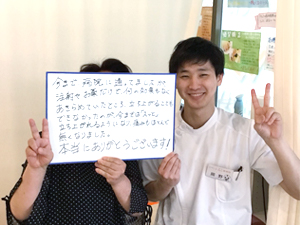 今まで病院に通ってましたが
注射やお薬だけで何の効果もなく
あきらめていたところ、立ち上がることも
できなかったのが今ではスッと
立ち上がれるようになり痛みもほとんど
無くなりました。
本当にありがとうございます!